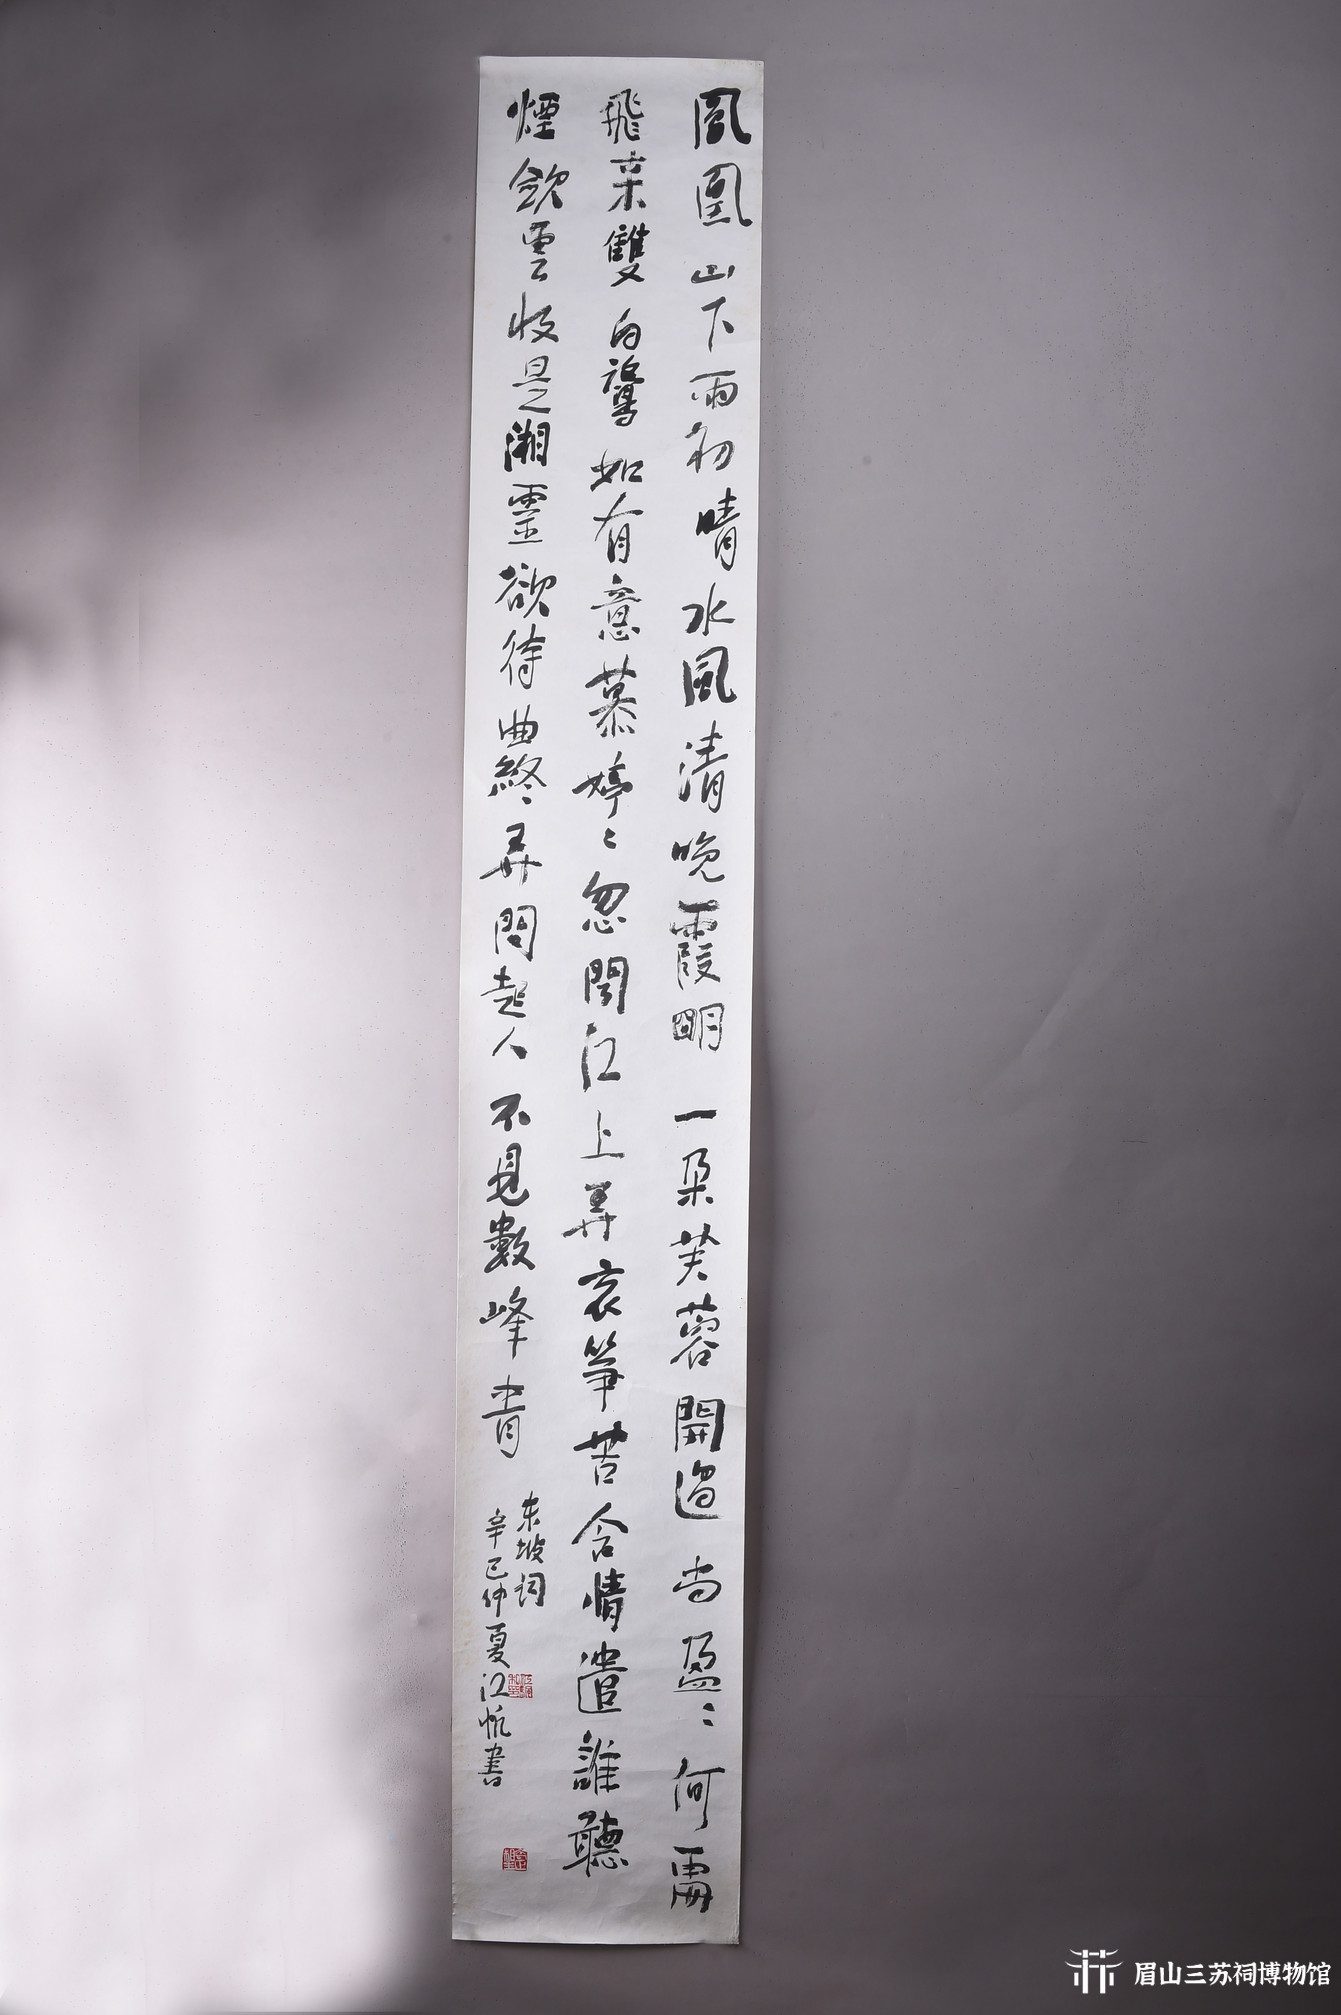 鳳凰山下雨初晴水風清晚霞明一朵芙蓉開過尚盈〻何處
飛來雙白鷺如有意慕婷〻忽聞江上弄哀箏苦含情遣誰聽
煙斂雲收是湘靈欲待曲終尋問起人不見數峰青
东坡词
辛巳仲夏江帆書
眉山三苏祠博物馆